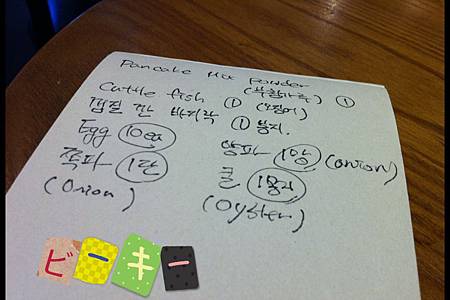 Pancake Mix Powder
(부침가루) ①
Cuttle fish ① (오징어)
껍질 깐 바지락 ① 봉지.
Egg 10ea 양파 1망 (onion)
쪽파 1단 굴 1봉지
(Onion) (Oyster)
ビーキー